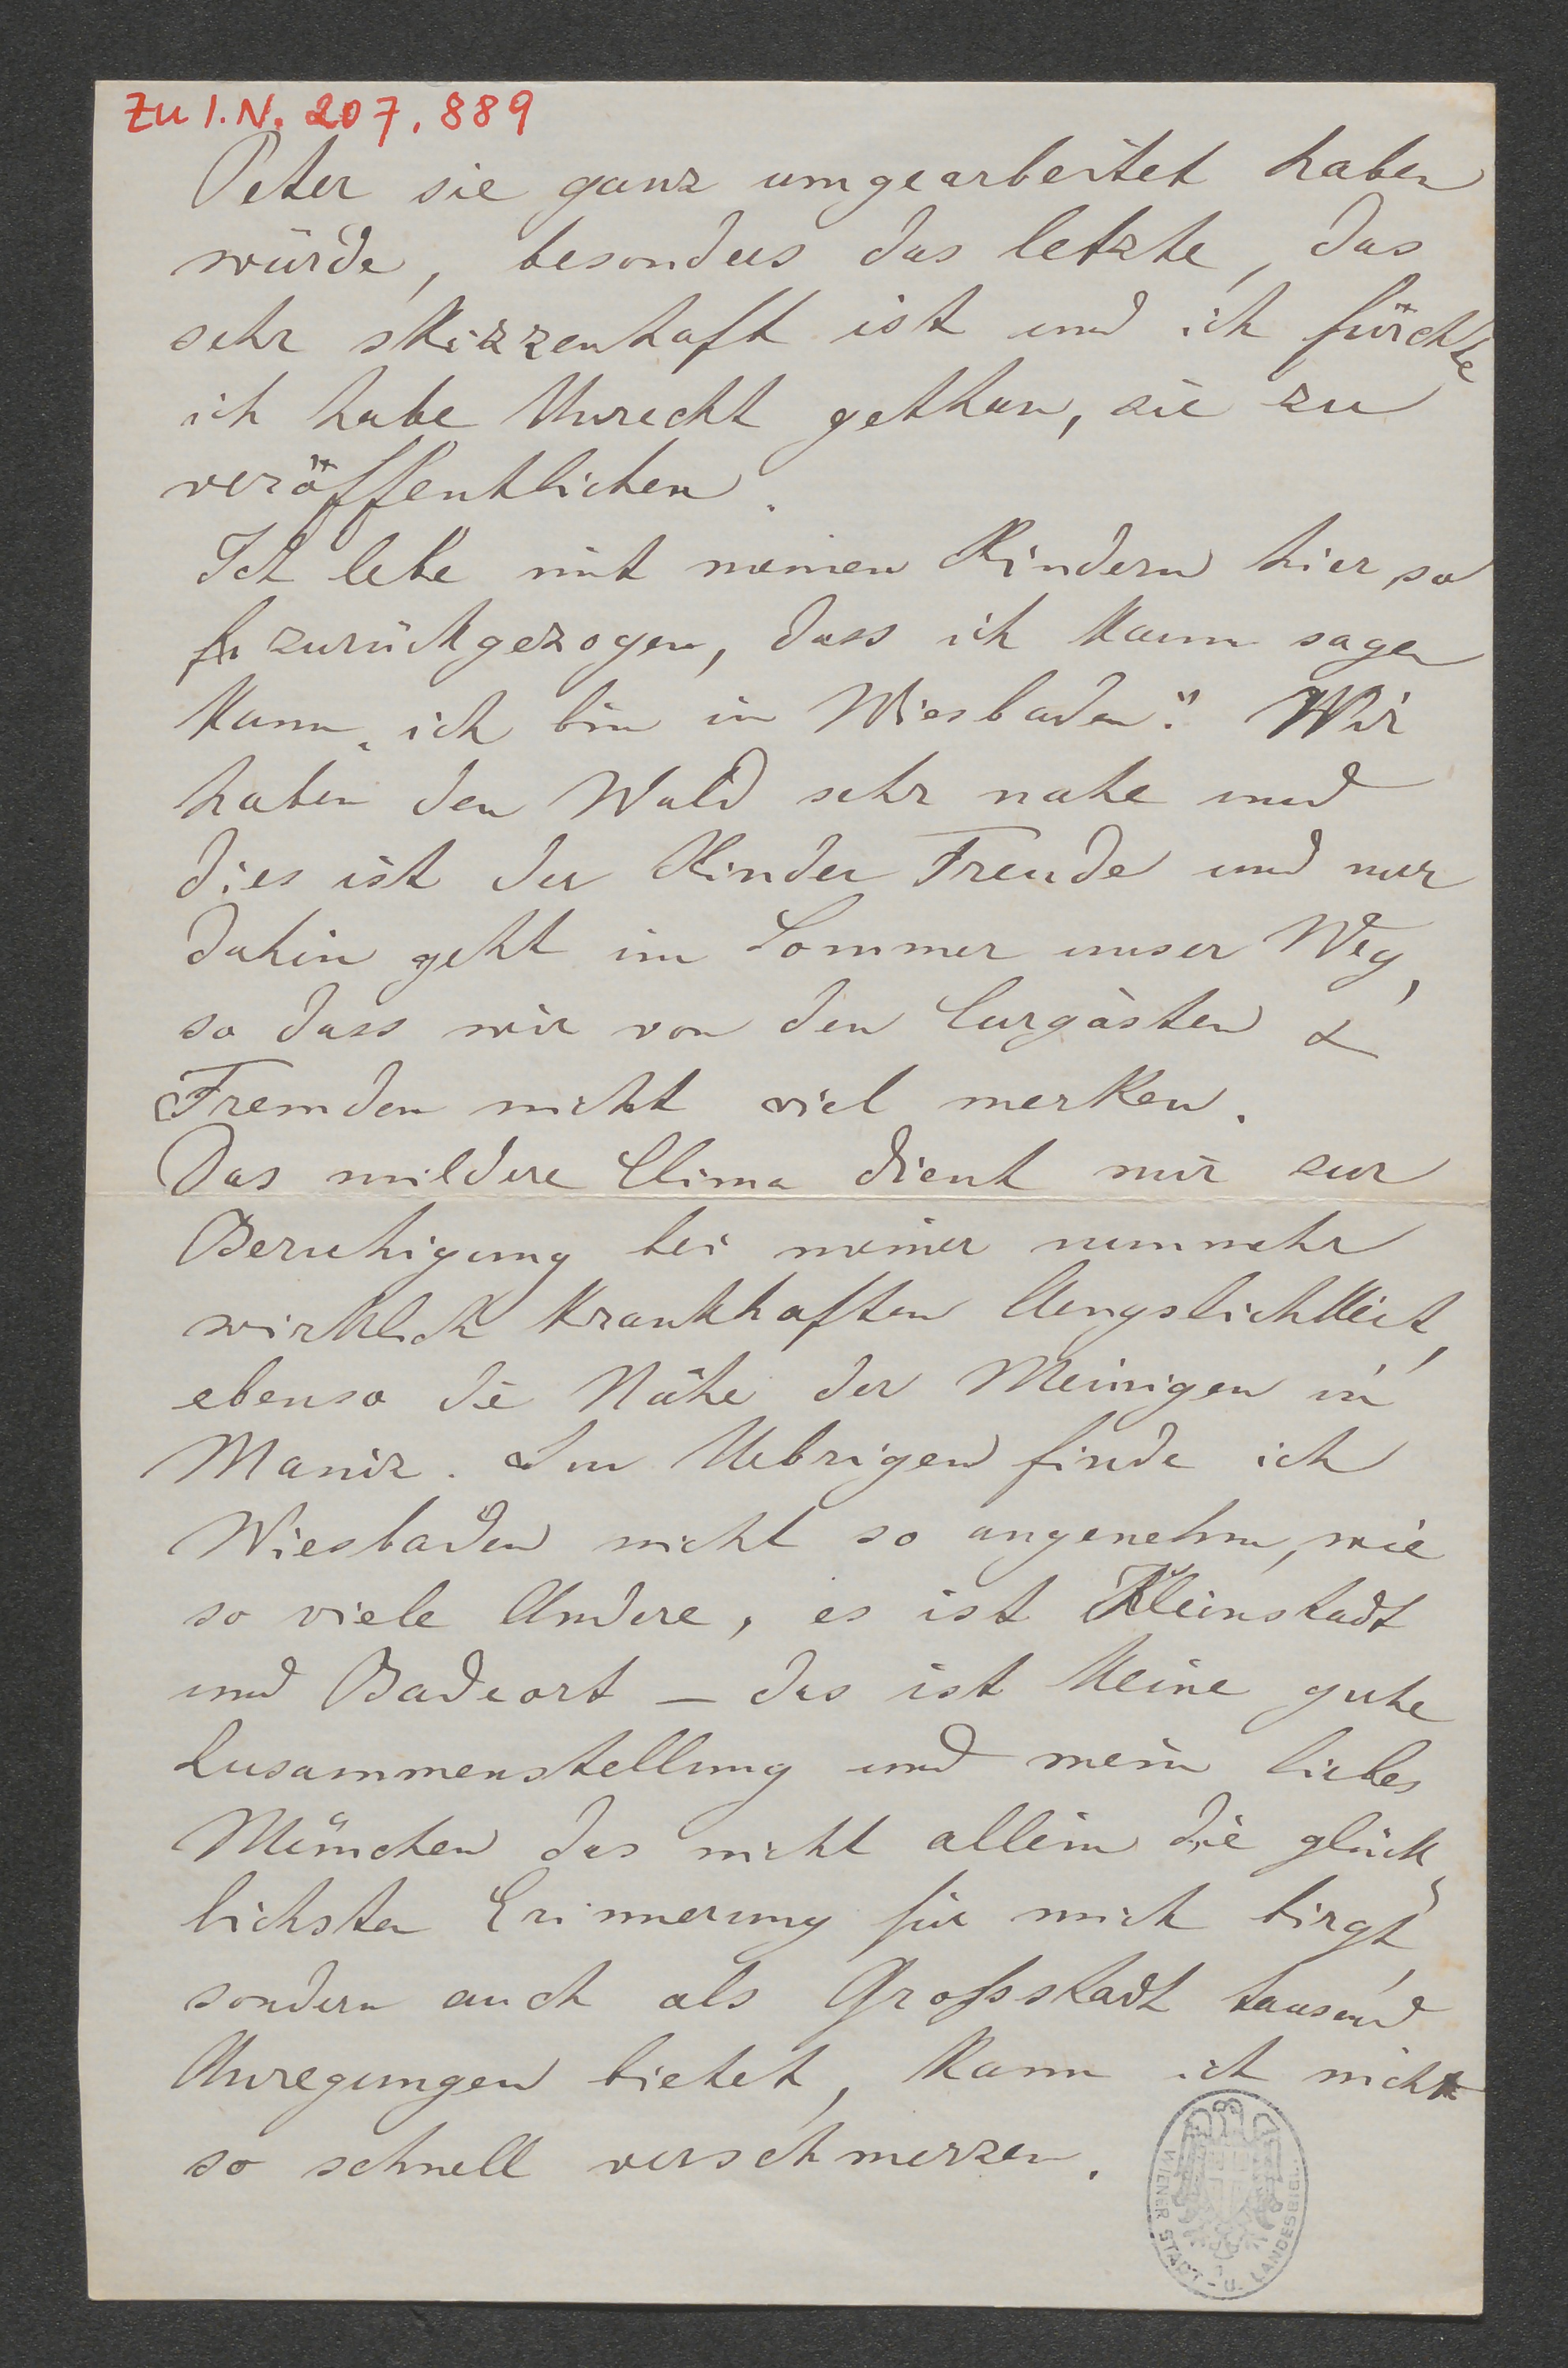 Zu I.N. 207.889
Peter sie ganz umgearbeitet haben
würde, besonders das letzte, das
sehr skizzenhaft ist und ich fürchte
ich habe Unrecht gethan, sie zu
veröffentlichen.
Ich lebe mit meinen Kindern hier so
zurückgezogen, dass ich kaum sagen
kann „ich bin in Wiesbaden". Wir
haben den Wald sehr nahe und
dies ist der Kinder Freude und nur
dahin geht im Sommer unser Weg,
so dass wir von den Curgästen &
Fremden nicht viel merken.
Das mildere Clima dient mir zur
Beruhigung bei meiner nunmehr
wirklich krankhaften Aengslichkeit,
ebenso die Nähe der Meinigen in
Mainz. Im Uebrigen finde ich
Wiesbaden nicht so angenehm, wie
so viele Andere, es ist Kleinstadt
und Badeort – das ist keine gute
Zusammenstellung und mein liebes
München das nicht allein die glück
lichsten Erinnerung für mich birgt,
sondern auch als Großstadt tausend
Anregungen bietet, kann ich nicht
so schnell verschmerzen.
WIENER STADT- U. LANDESBIB.